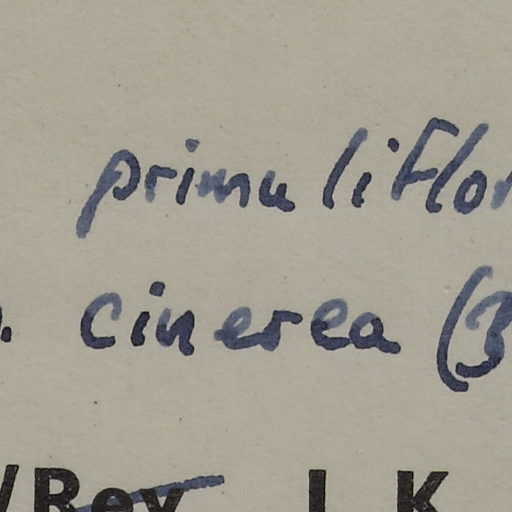 primuliflor
. cinerea (B
/Rev. L. K